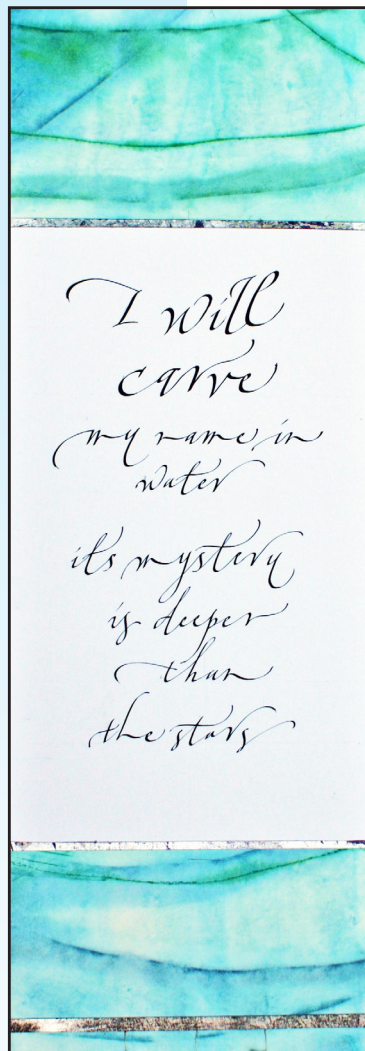 I will
carve
my name in
water
its mystery
is deeper
than
the stars